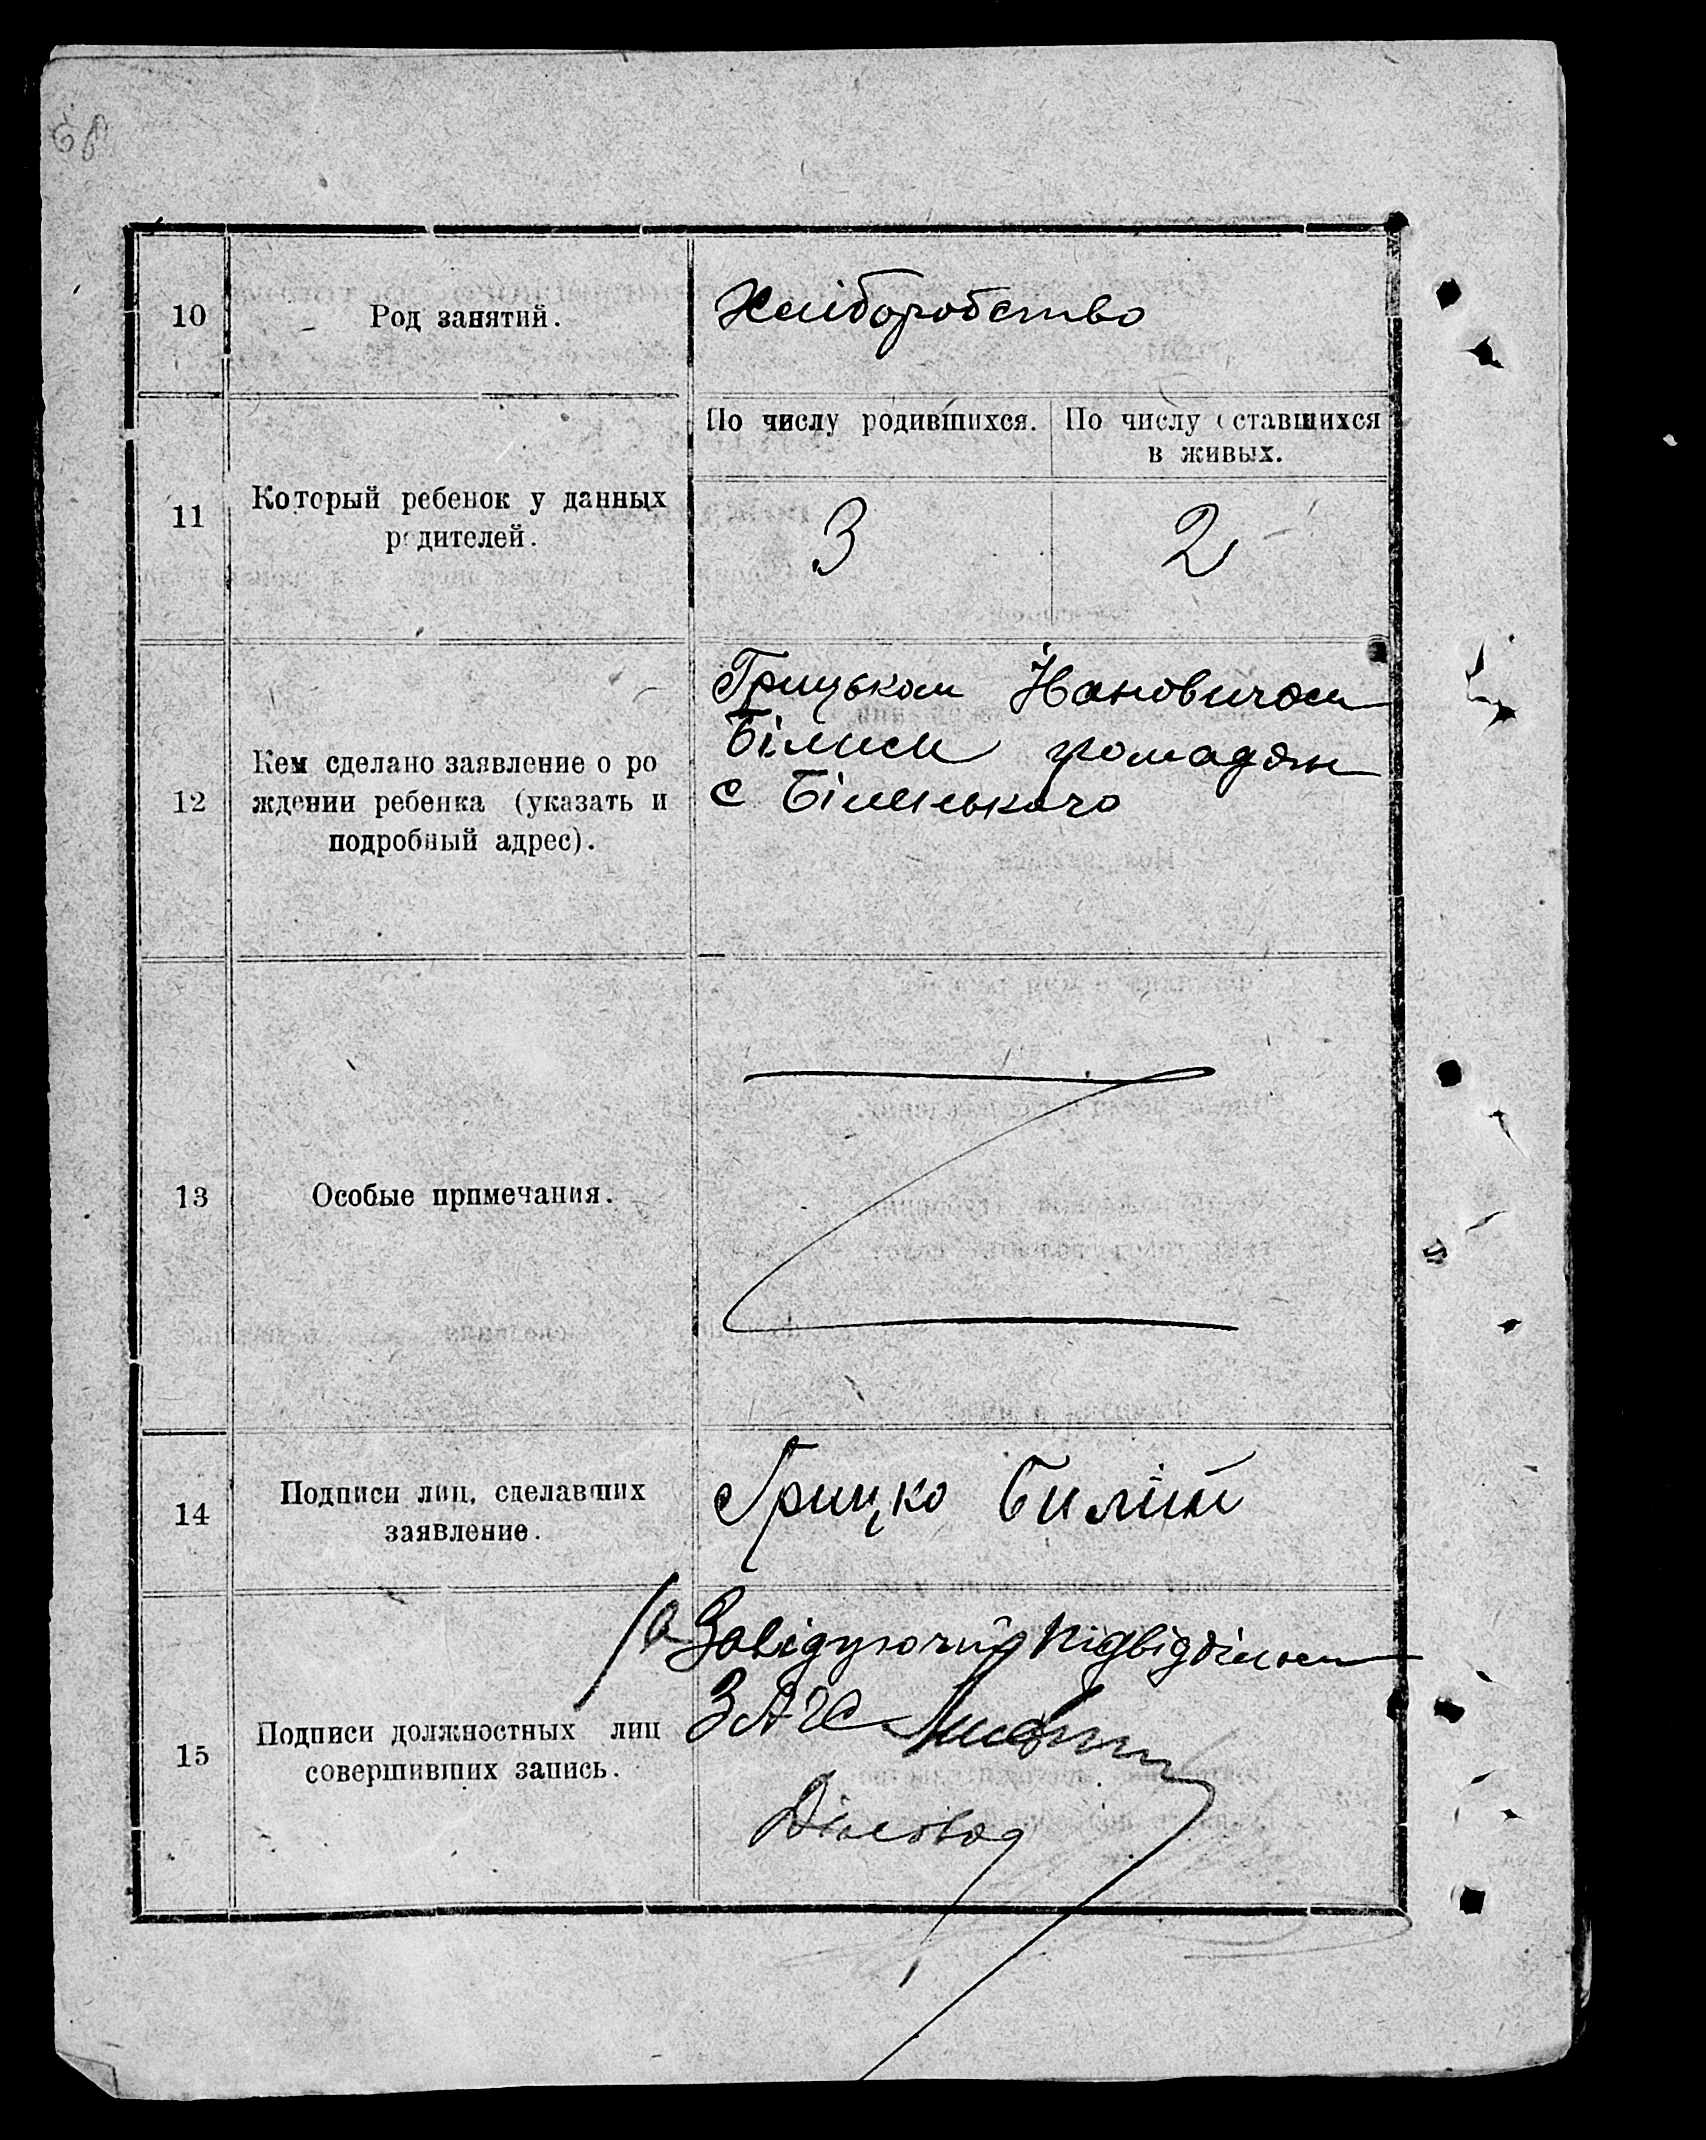 10
Род занятий.
Хліборобство
11
Который ребенок у данных
родителей.
По числу родившихся.
По числу оставшихся
в живых.
3
2
12
Кем сделано заявление о ро
ждении ребенка (указать и
подробный адрес).
Грицьком Ивановичом
Білим громадян
с Біленького
13
Особые примечания.
14
Подписи лиц, сделавших
заявление.
Грицко Билий
15
Подписи должностных лиц
совершивших запись.
Завідуючий підвідділом
ЗАГС
Діловод